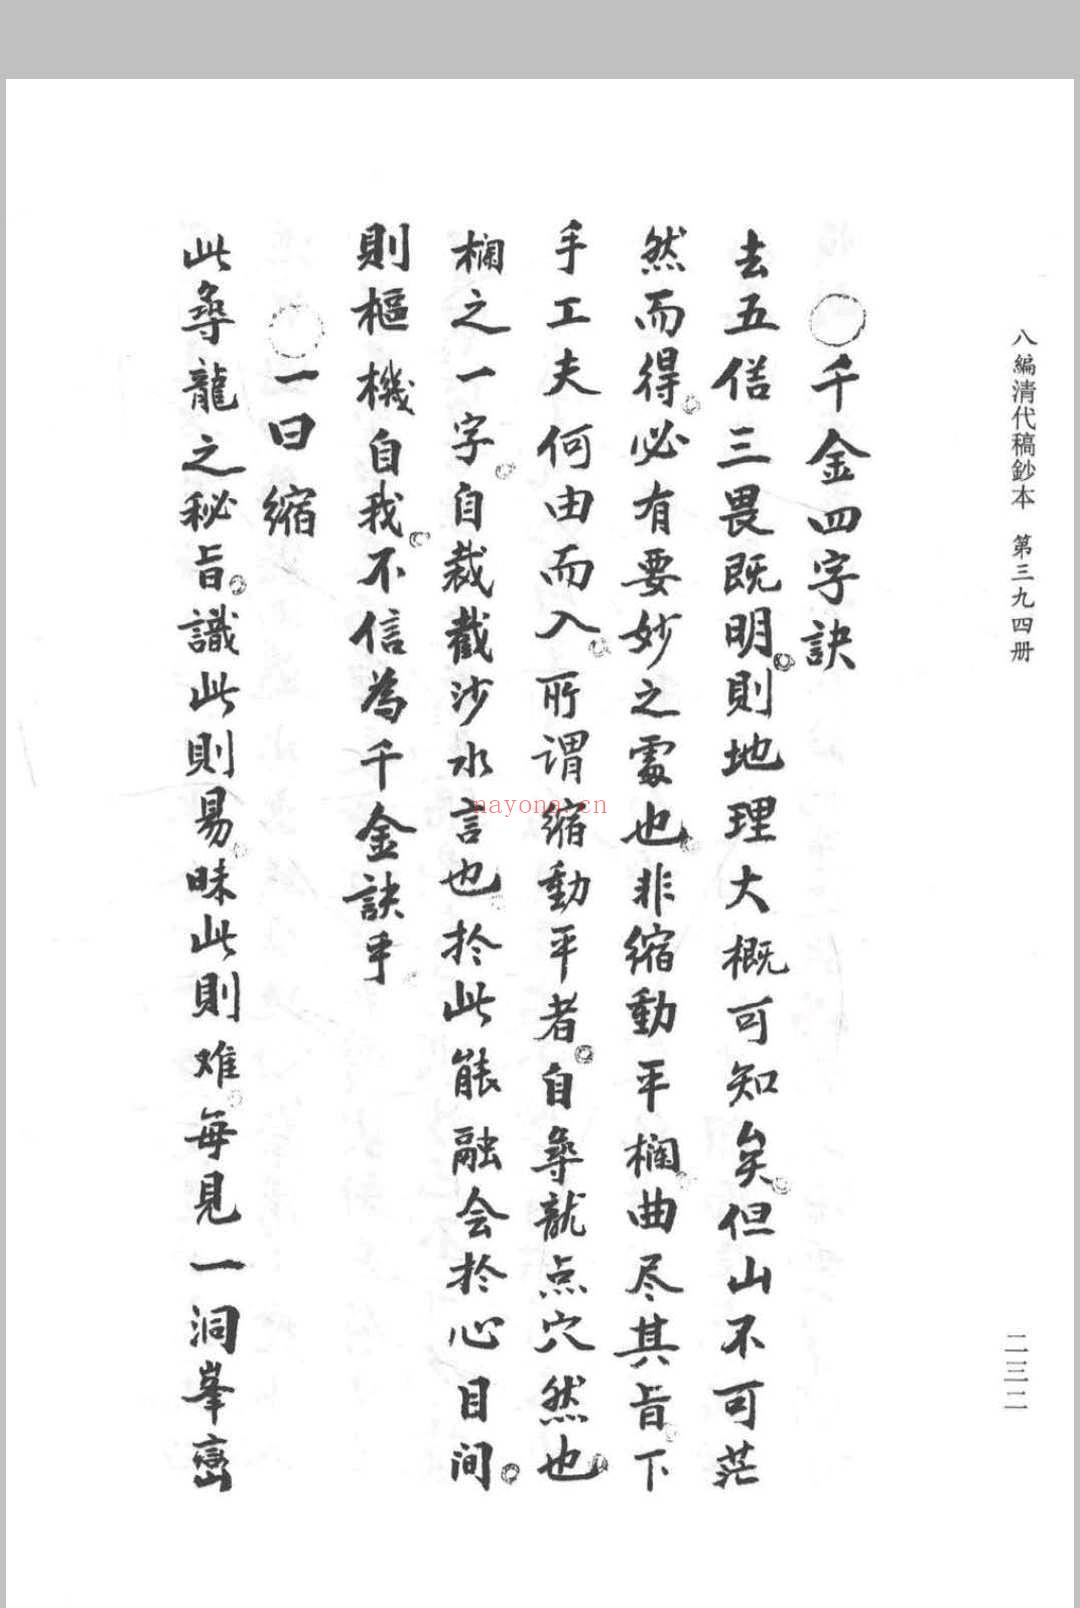 八編清代稿鈔本 第三九四册
二三二
○千金四字訣
去五㑽三畏既明則地理大概可知矣但山不可茫
然而得必有要妙之處也非缩動平欄曲尽其旨下
手工夫何由而入所谓缩動平者自尋龍点穴然也
欄之一字自裁截沙水言也於此能融会於心目间
則樞機自我不信為千金訣乎
○一曰缩
此尋龍之秘旨識此則易昧此則难每見一洞峯巒
nayona.cn